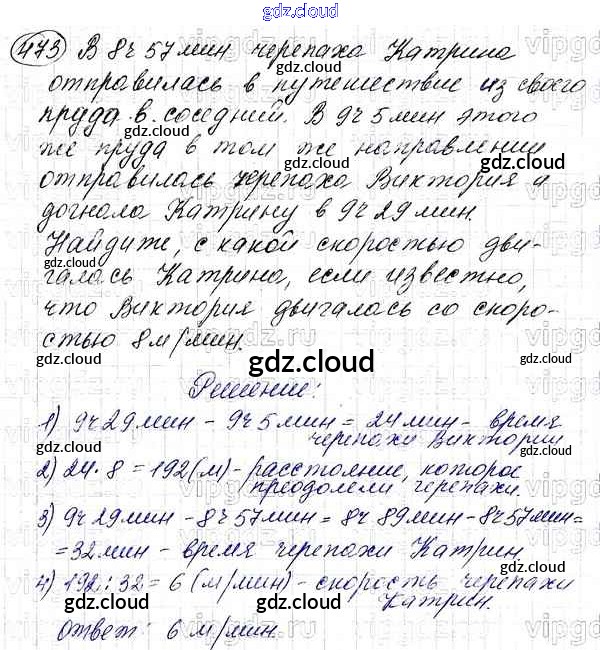 gdz.cloud
473 В 8ч 57мин черепаха Катрина
отправилась в путешествие из своего
пруда в соседний. В 9ч 5мин этого
же пруда в том же направлении
отправилась черепаха Виктория и
догнала Катрину в 9ч 29мин.
Найдите, с какой скоростью дви-
галась Катрина, если известно,
что Виктория двигалась со скоро-
стью 8м/мин.
gdz.cloud
Решение:
1) 9ч 29мин - 9ч 5мин = 24мин - время
черепахи Виктории
2) 24·8=192(м)-расстояние, которое
преодолели черепахи.
3) 9ч 29мин - 8ч 57мин = 8ч 89мин-8ч57мин=
=32мин - время черепахи Катрин
4) 192:32=6(м/мин)-скорость черепахи
Катрин.
Ответ: 6м/мин.
gdz.cloud